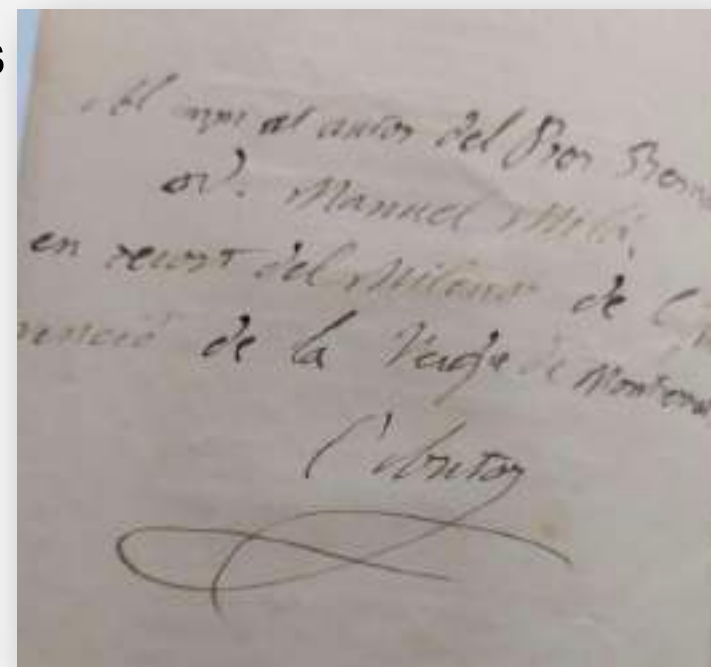 s
Al autor del Pros
D. Manuel Milá,
en recort del Milenar de
de la Verge de Montserrat
L'Autor